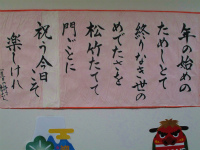 年の始めの
ためしとて
終りなき世の
めでたさを
松竹たてて
門ごとに
祝う今日こそ
楽しけれ